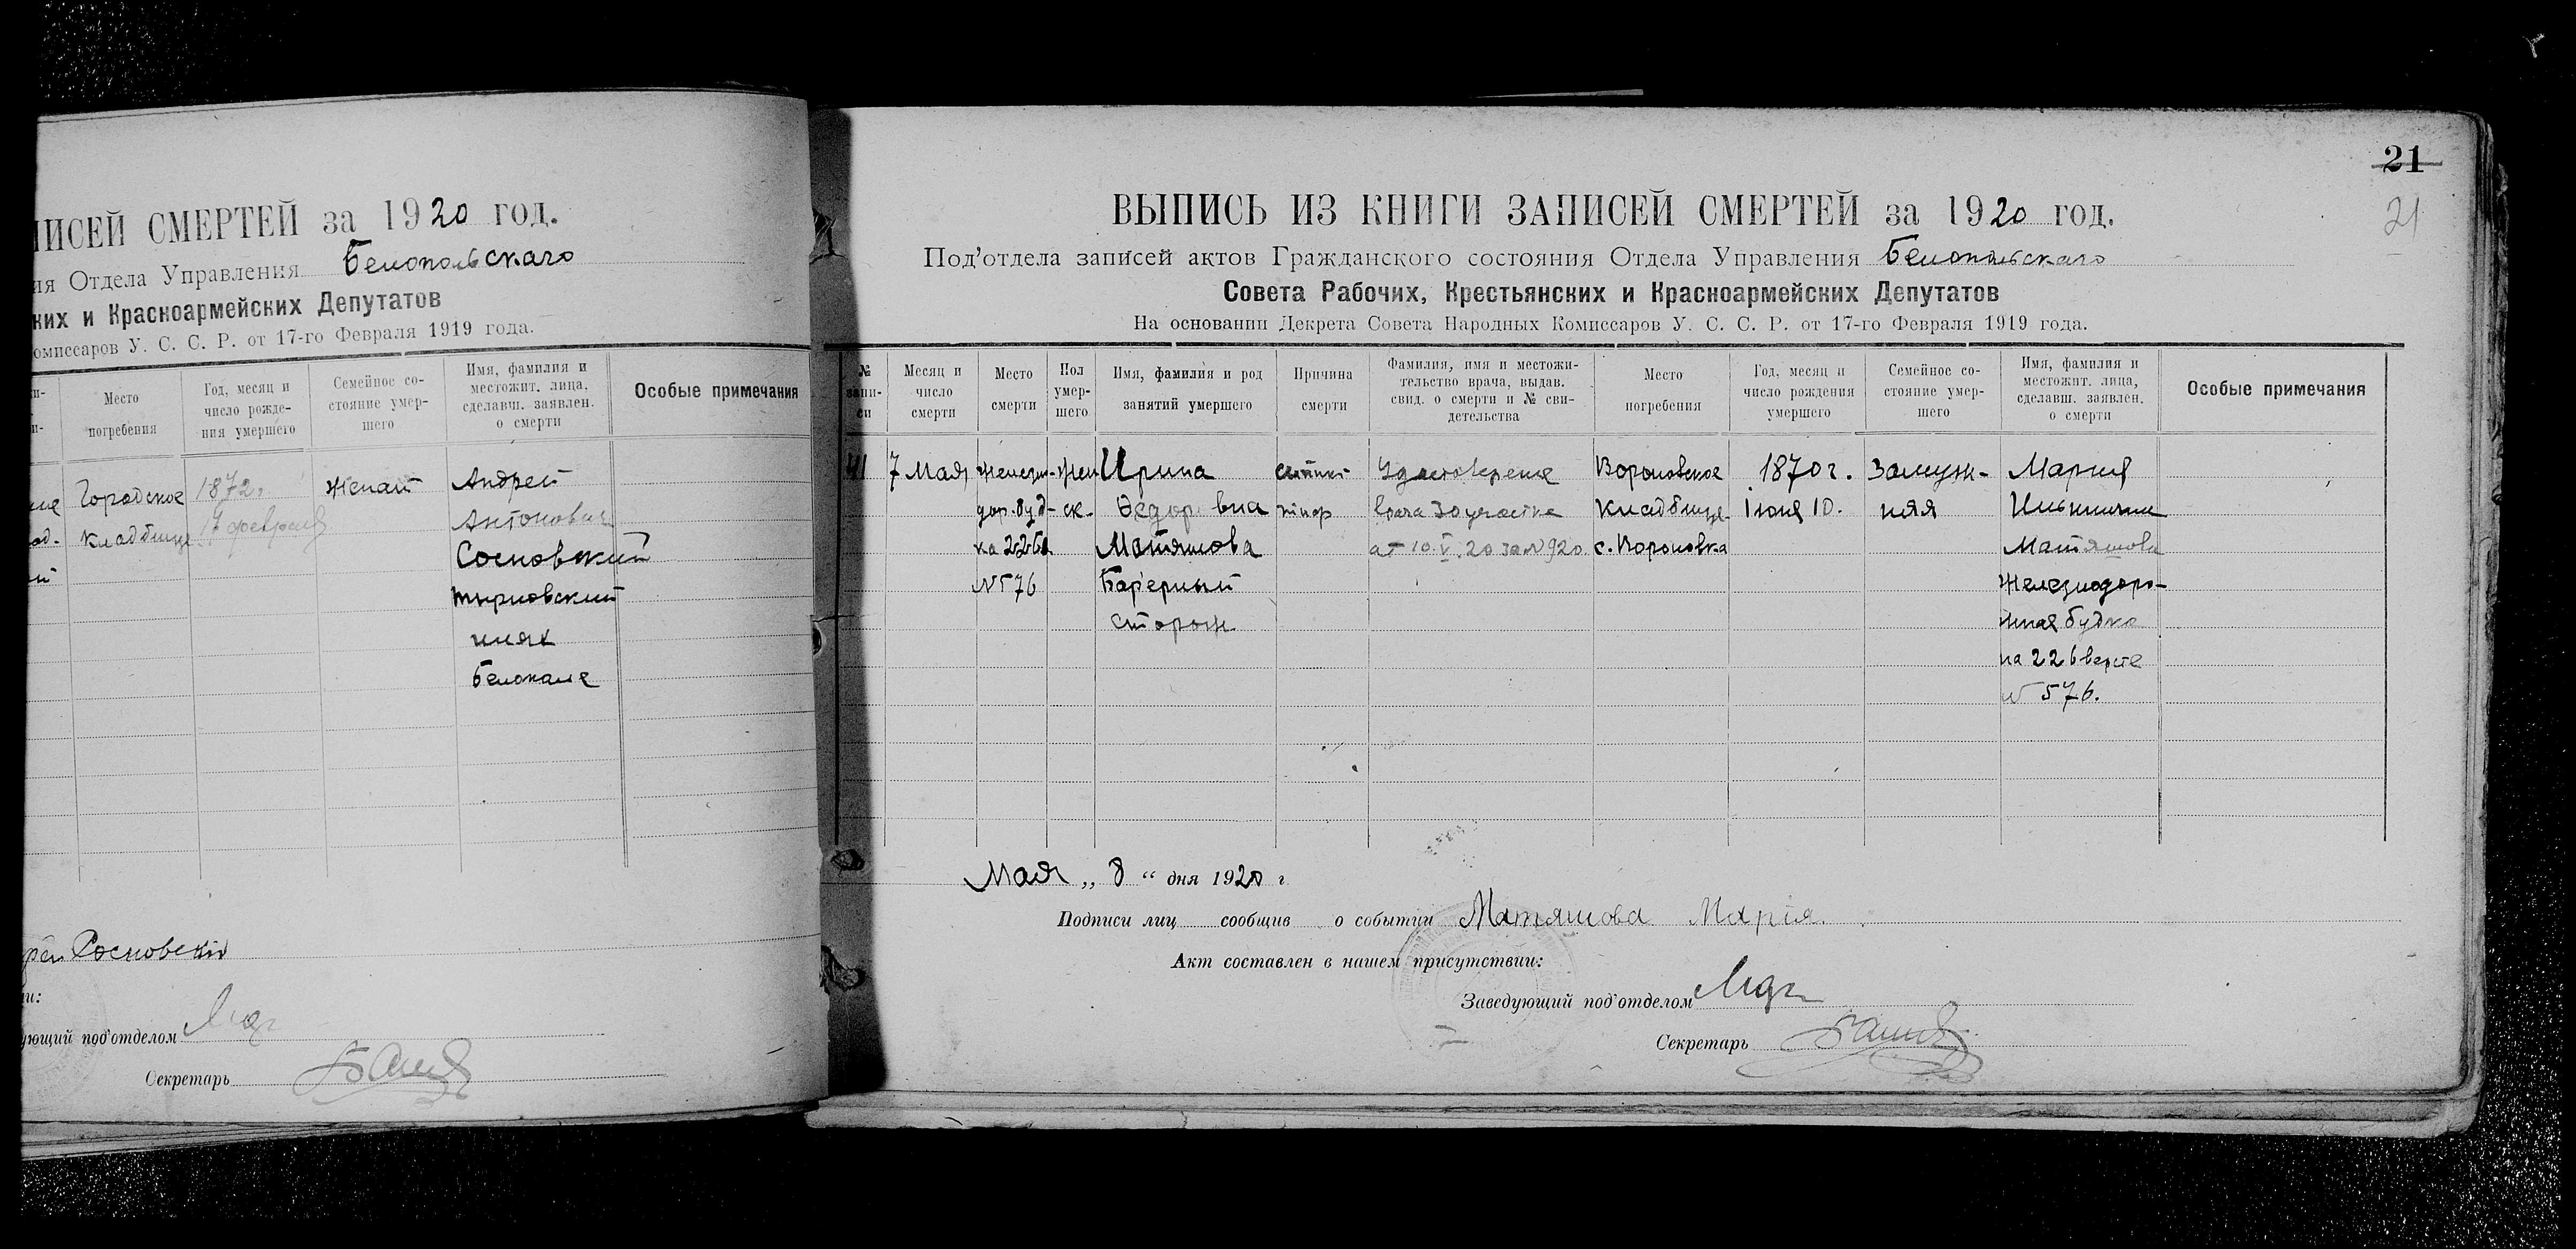 ПИСЕЙ СМЕРТЕЙ за 1920 год.
ия Отдела Управления Белопольскаго
ких и Красноармейских Депутатов
омиссаров У. С. С. Р. от 17-го Февраля 1919 года.
Место погребения
Год, месяц и число рожде-ния умершего
Семейное со-стояние умер-шего
Имя, фамилия и местожит. лица, сделавш. заявлен. о смерти
Особые примечания
Городское 1872. Женат Андрей
кладбище 17 февраля Антонович
Сосновский
Белополе
Сосновскій
ующий под'отделом
Секретарь
21
21
ВЫПИСЬ ИЗ КНИГИ ЗАПИСЕЙ СМЕРТЕЙ за 1920 год.
Под'отдела записей актов Гражданского состояния Отдела Управления Белопольскаго
Совета Рабочих, Крестьянских и Красноармейских Депутатов
На основании Декрета Совета Народных Комиссаров У. С. С. Р. от 17-го Февраля 1919 года.
№ запи-си
Месяц и число смерти
Место смерти
Пол умер-шего
Имя, фамилия и род занятий умершего
Причина смерти
Фамилия, имя и местожи-тельство врача, выдав. свид. о смерти и № сви-детельства
Место погребения
Год, месяц и число рождения умершего
Семейное со-стояние умер-шего
Имя, фамилия и местожит. лица, сделавш. заявлен. о смерти
Особые примечания
41 7 Мая Железн- Жен Ирина Удостоверение Вороновское 1870 г. Замуж- Мария
дор. буд- ск. Ѳедоровна врача 30 участка кладбище Іюня 10. няя
ка 226в Матяшова от 10.V.20 за № 920 с. Вороновка Матяшова
№ 576 Бар'ерный Железнодоро-
сторож жная будка
на 226 версте
№ 576.
Мая „ 8 “ дня 1920 г
Подписи лиц сообщив о событии Матяшова Марія.
Акт составлен в нашем присутствии:
Заведующий под'отделом
Секретарь